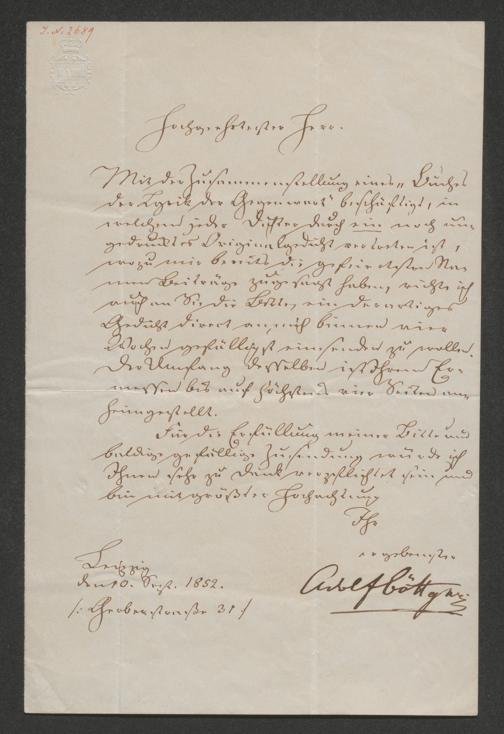 J.N. 2689
Hochgeehrtester Herr.
Mit der Zusammenstellung eines „Buches
der Lyrik der Gegenwart" beschäftigt, in
welchem jeder Dichter durch ein noch un-
gedrucktes Originalgedicht vertreten ist,
wozu mir bereits die gefeiertsten Na-
men Beiträge zugesagt haben, richte ich
auch an Sie die Bitte, ein derartiges
Gedicht direct an mich binnen vier
Wochen gefälligst einsenden zu wollen.
Der Umfang desselben ist Ihrem Er-
messen bis auf höchstens vier Seiten an-
heimgestellt.
Für die Erfüllung meiner Bitte und
baldige gefällige Zusendung würde ich
Ihnen sehr zu Dank verpflichtet sein und
bin mit größter Hochachtung
Ihr
ergebenster
Adolf Böttger.
Leipzig
den 10. Sept. 1852.
/: Gerberstraße 31 :/